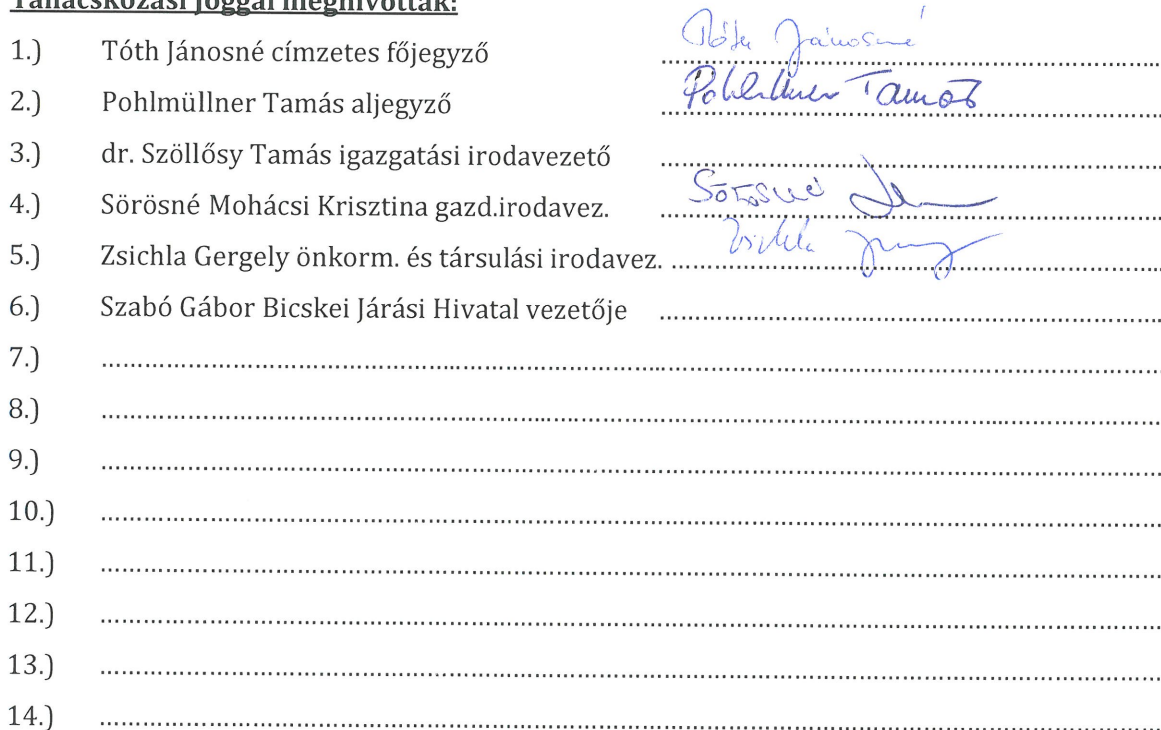 Tanácskozási joggal meghívottak:
1.) Tóth Jánosné címzetes főjegyző ........ Tóth Jánosné
2.) Pohlmüllner Tamás aljegyző ........ Pohlmüllner Tamás
3.) dr. Szöllősy Tamás igazgatási irodavezető ........
4.) Sörösné Mohácsi Krisztina gazd.irodavez. ........ Sörösné
5.) Zsichla Gergely önkorm. és társulási irodavez. ........ Zsichla
6.) Szabó Gábor Bicskei Járási Hivatal vezetője ........
7.) ........
8.) ........
9.) ........
10.) ........
11.) ........
12.) ........
13.) ........
14.) ........